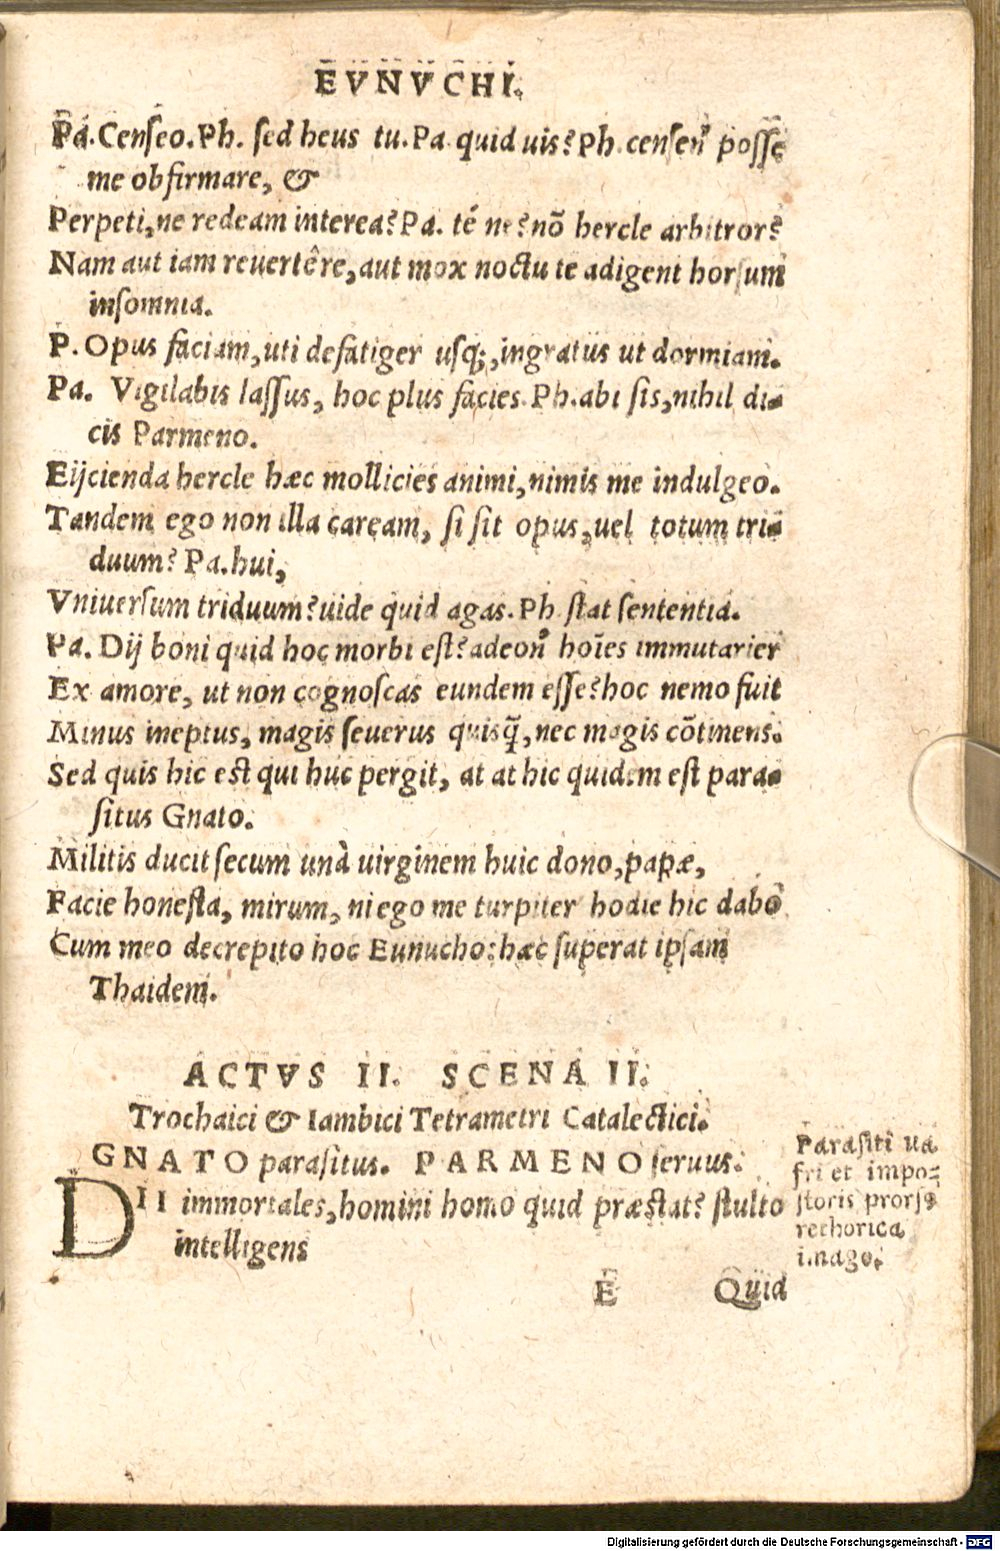 EVNVCHI.
Pa. Censeo. Ph. sed heus tu. Pa. quid uis? Ph. censen' posse
me obfirmare, &
Perpeti, ne redeam interea? Pa. té ne? nõ hercle arbitror?
Nam aut iam reuertêre, aut mox noctu te adigent horsum
insomnia.
P. Opus faciam, uti defatiger usq;, ingratiis ut dormiam.
Pa. Vigilabis lassus, hoc plus facies. Ph. abi sis, nihil di-
cis Parmeno.
Eijcienda hercle hæc mollicies animi, nimis me indulgeo.
Tandem ego non illa caream, si sit opus, uel totum tri-
duum? Pa. hui,
Vniuersum triduum? uide quid agas. Ph stat sententia.
Pa. Dij boni quid hoc morbi est? adeon' hoĩes immutarier
Ex amore, ut non cognoscas eundem esse? hoc nemo fuit
Minus ineptus, magis seuerus quisq̃, nec magis cõtinens.
Sed quis hic est qui huc pergit, at at hic quidem est para-
situs Gnato.
Militis ducit secum unà uirginem huic dono, papæ,
Facie honesta, mirum, ni ego me turpiter hodie hic dabõ
Cum meo decrepito hoc Eunucho: hæc superat ipsam
Thaidem.
ACTVS II. SCENA II.
Trochaici & Iambici Tetrametri Catalectici.
GNATO parasitus. PARMENO seruus.
DII immortales, homini homo quid præstat? stulto
intelligens
Parasiti ua
fri et impo-
storis prorsꝰ
rethorica
imago.
E Quid
Digitalisierung gefördert durch die Deutsche Forschungsgemeinschaft - DFG